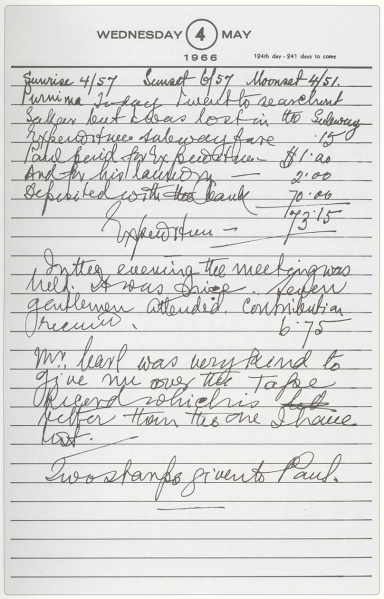 WEDNESDAY 4 MAY
1966
124th day - 241 days to come
Sunrise 4/57 Sunset 6/57 Moonset 4/51.
Purnima Today I went to search out
but I was lost in the Subway
Expenditure subway fare .15
Paul paid for Expenditure $1.00
And for his laundry — 2.00
Deposited with the bank 70.00
73.15
Expenditure —
In the evening the meeting was
held. It was nice. Seven
gentlemen attended. Contribution
6.75
Mr. Carl was very kind to
give me over the Tape
Record which is
better than the one I have
lost.
Two stamps given to Paul.